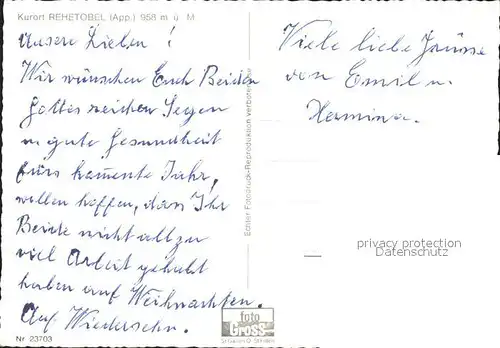 Kurort REHETOBEL (App.) 958 m ü M
Unsere Lieben !
Wir wünschen Euch Beiden
Gottes reichen Segen
u gute Gesundheit
fürs kommente Jahr,
wollen hoffen, dass Ihr
Beide nicht allzu
viel Arbeit gehabt
haben auf Weihnachten.
Auf Wiedersehn.
Nr. 23703
Echter Fotodruck-Reproduktion verboten
foto
Gross
St. Gallen
Viele liebe Grüsse
von Emil u.
Hermina.
privacy protection
Datenschutz